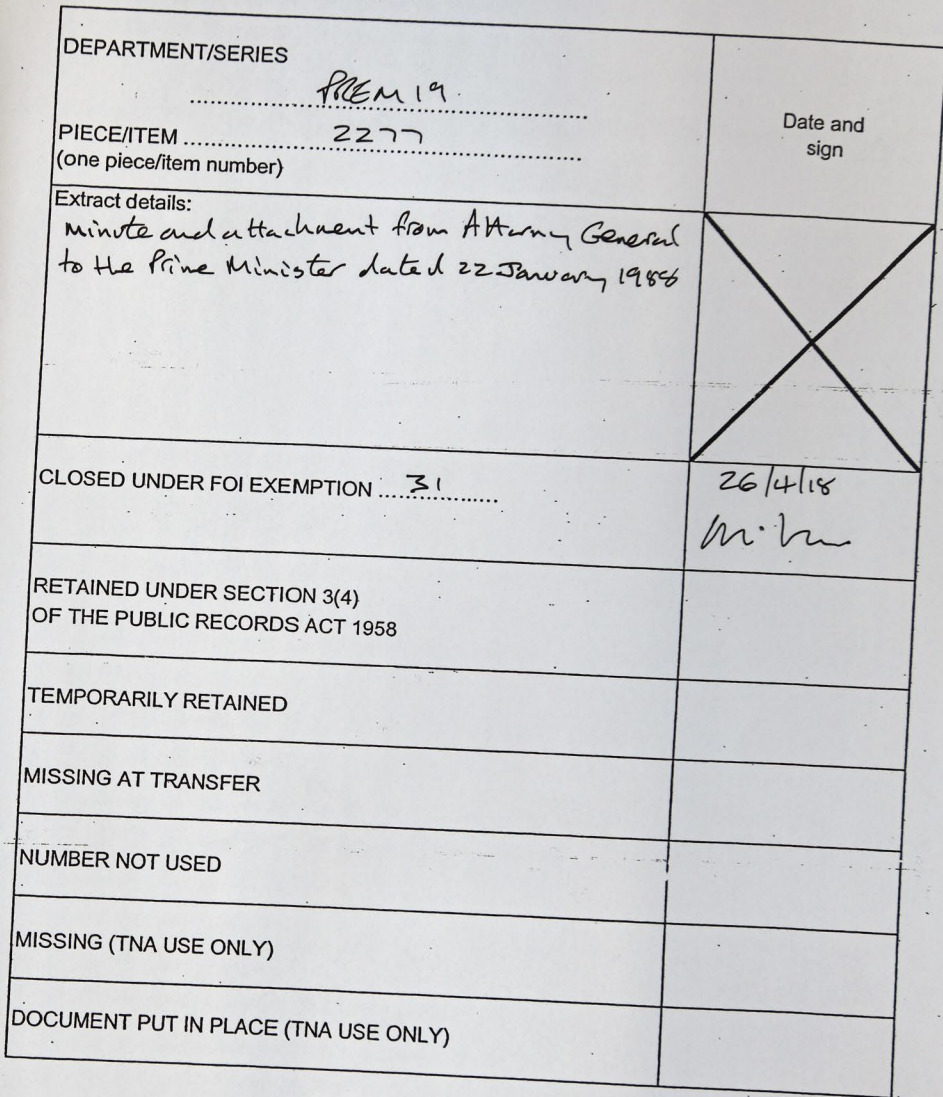 DEPARTMENT/SERIES
PREM 19
Date and
sign
PIECE/ITEM 2277
(one piece/item number)
Extract details:
Minute and attachment from Attorney General
to the Prime Minister dated 22 January 1988
CLOSED UNDER FOI EXEMPTION 31
26/4/18
RETAINED UNDER SECTION 3(4)
OF THE PUBLIC RECORDS ACT 1958
TEMPORARILY RETAINED
MISSING AT TRANSFER
NUMBER NOT USED
MISSING (TNA USE ONLY)
DOCUMENT PUT IN PLACE (TNA USE ONLY)